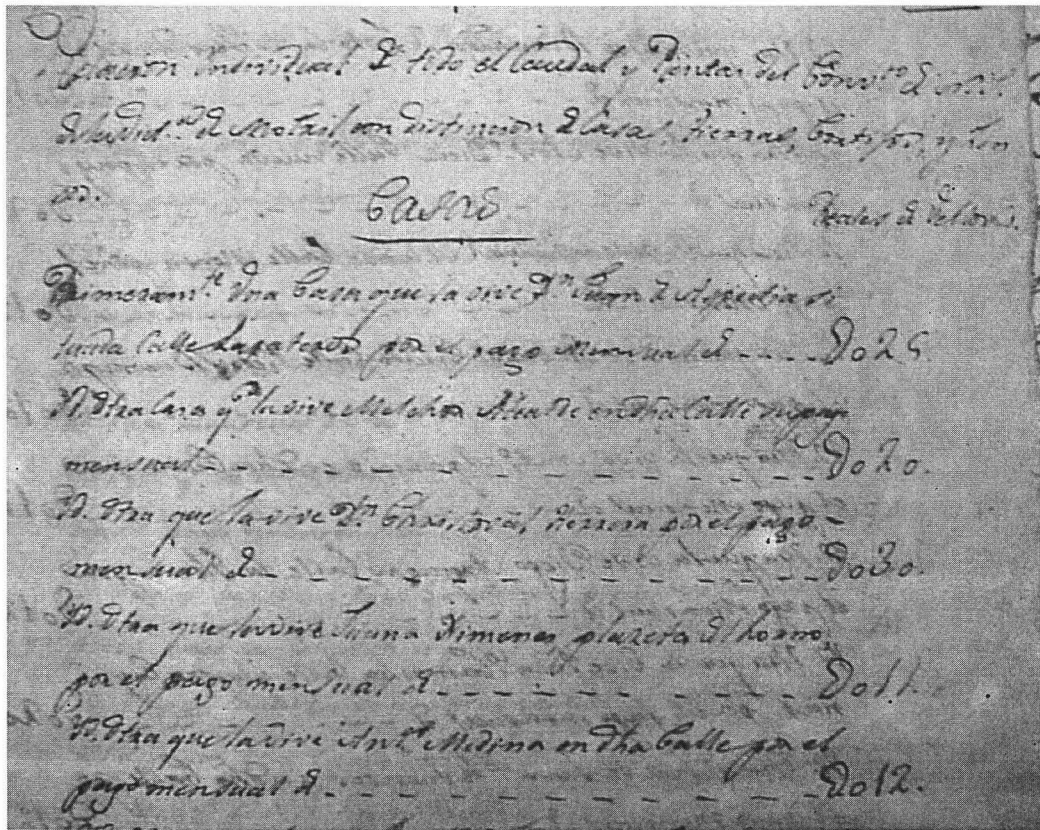 Relacion individual de todo el Caudal y Rentas del Convto de
de la de Motril, con distincion de Casas, tierras, Cortijos, y
Casas
Reales de Vellon.
Primeramte Una Casa que la vive Dn Juan de
tuada Calle Zapateros por el pago Mensual de ---- Do25
Yd. Otra Casa q.e la vive Melchor en dha Calle
mensual - - - - - - - - - - Do20.
Yd. Otra que la vive Dn Christoval Herrera por el pago -
mensual de - - - - - - - - - - Do30.
Yd. Otra que la vive Juana Ximenes plazeta del horno,
por el pago mensual de - - - - - - - - Do11.
Yd. Otra que la vive Anto Medina en dha Calle por el
pago mensual de - - - - - - - - - Do12.